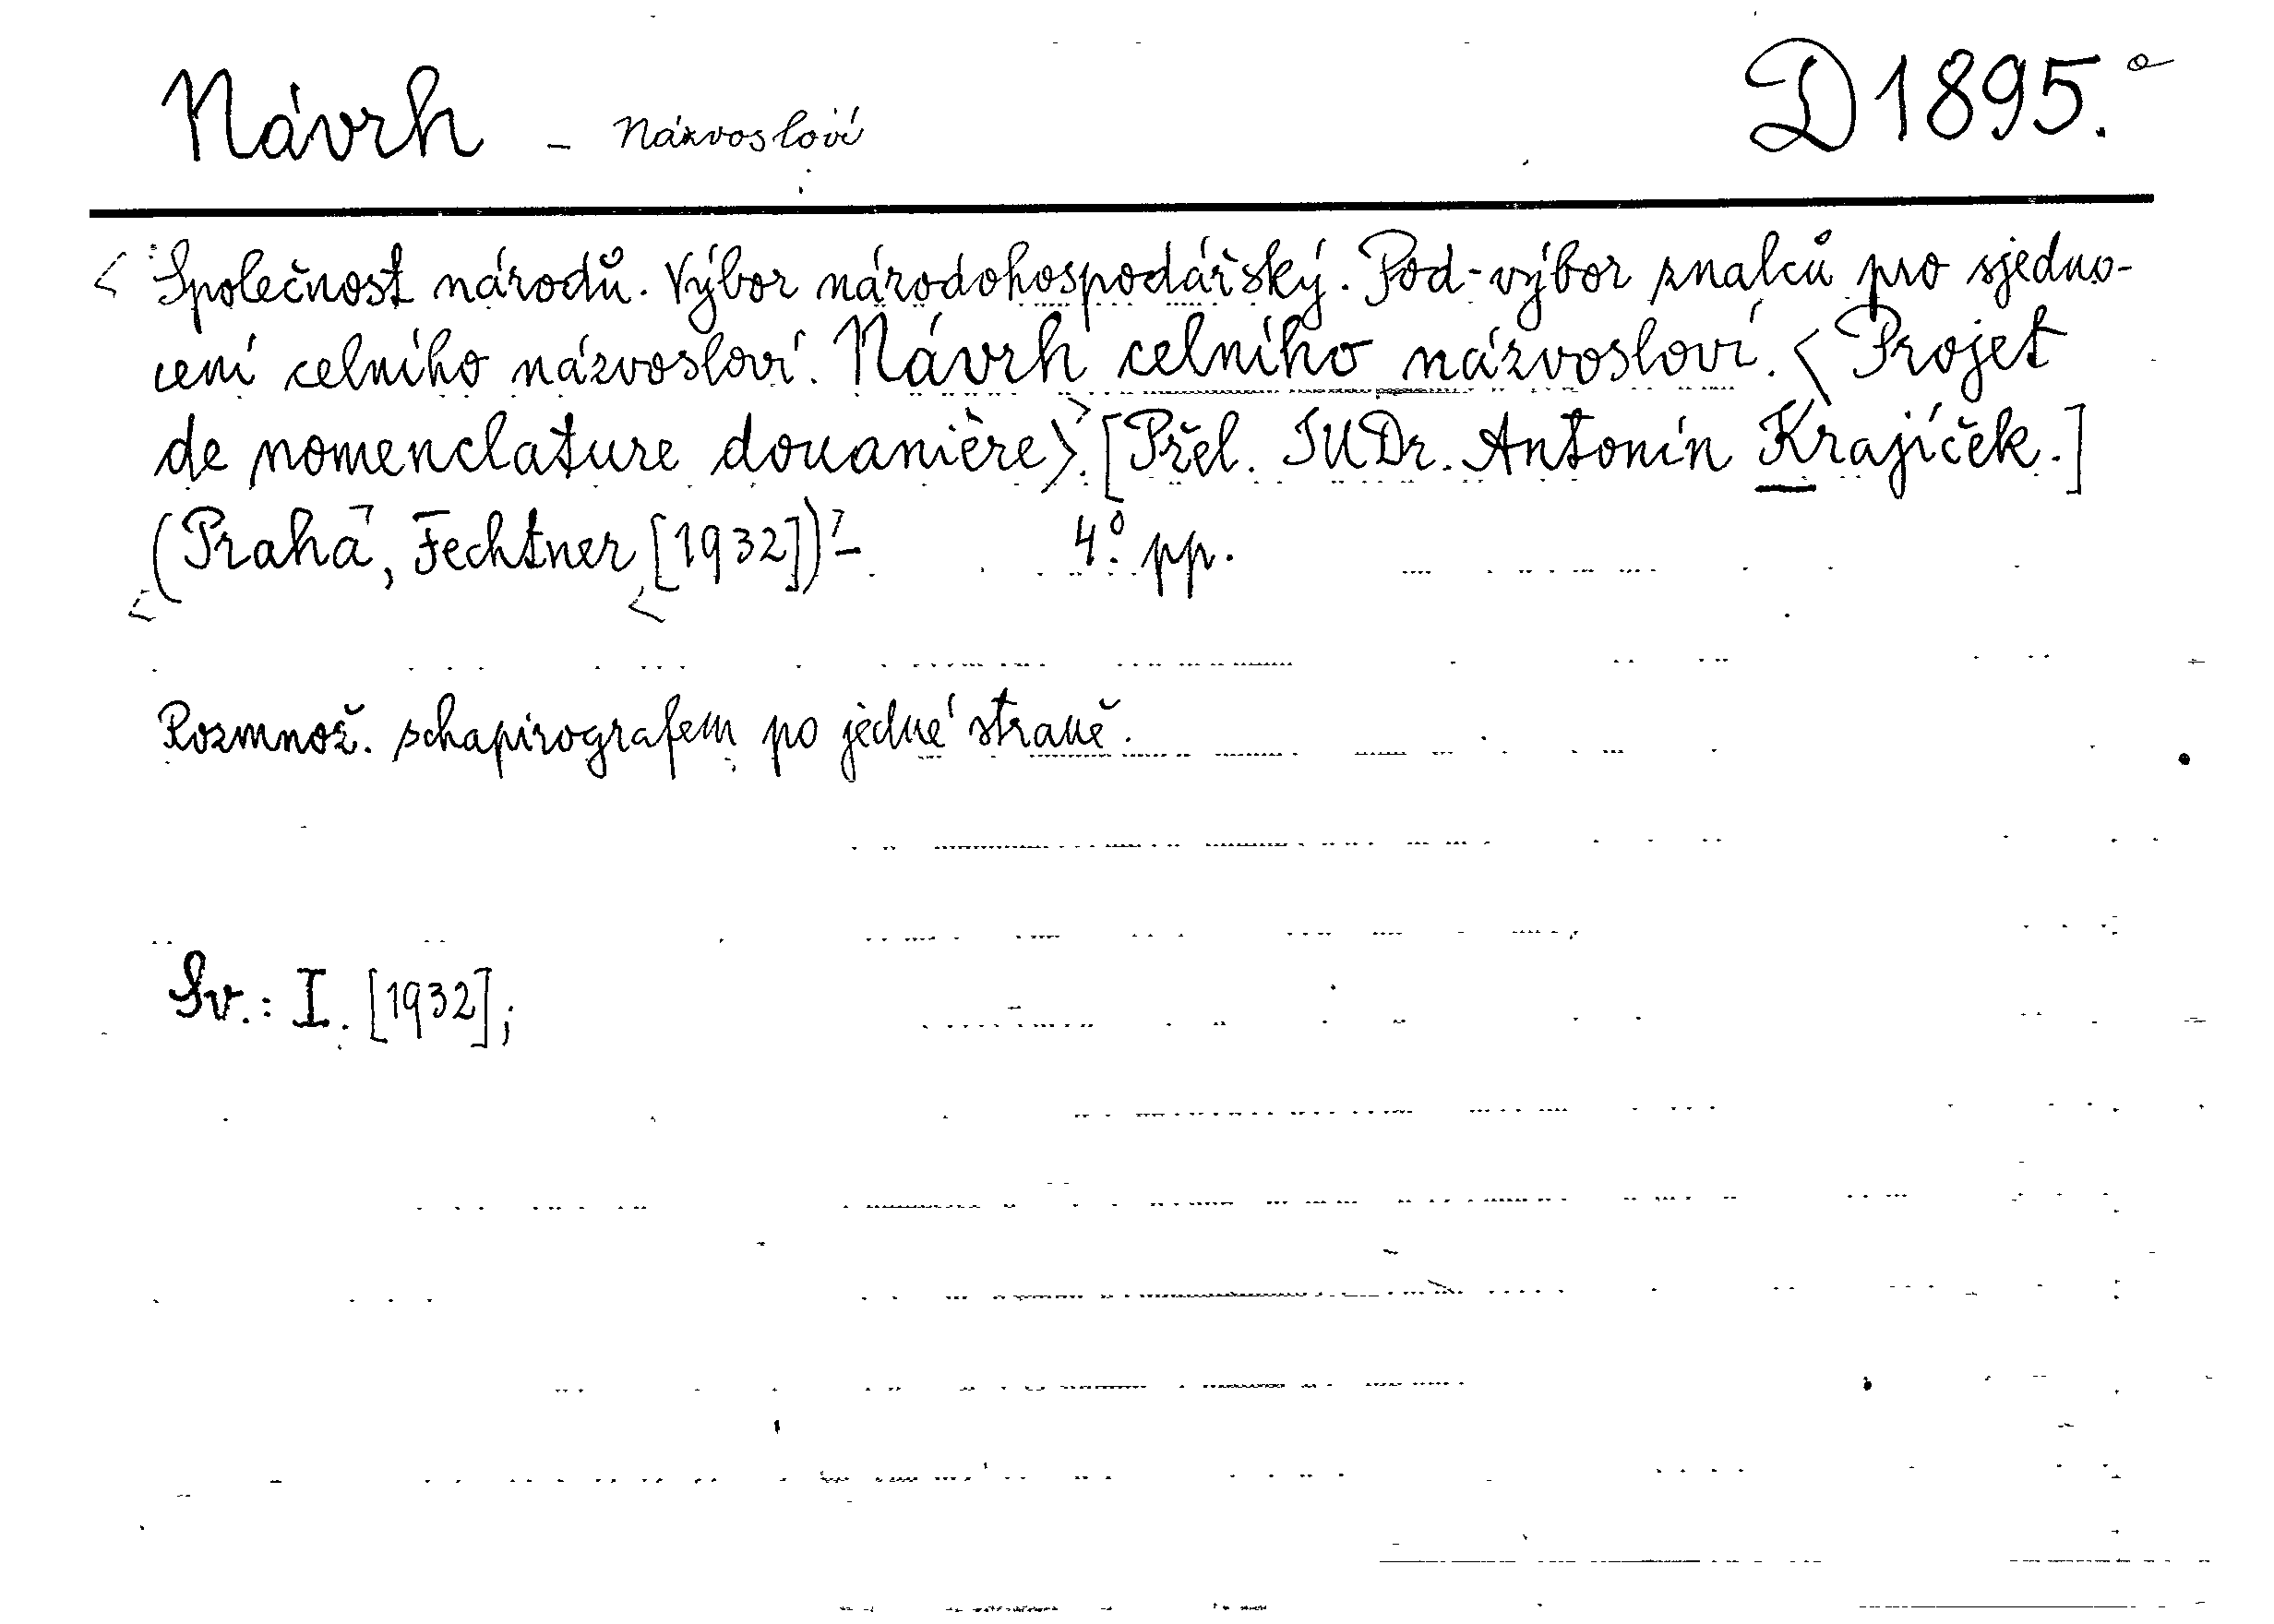 Návrh - Názvosloví D 1895.a
< Společnost národů. Výbor národohospodářský. Pod-výbor znalců pro sjedno-
cení celního názvosloví. Návrh celního názvosloví. < Projet
de nomenclature douanière >. [Přel. JUDr. Antonín Krajíček.]
(Praha, Fechtner [1932]) - 4° pp.
Rozmnož. schapirografem po jedné straně.
Sv.: I. [1932];